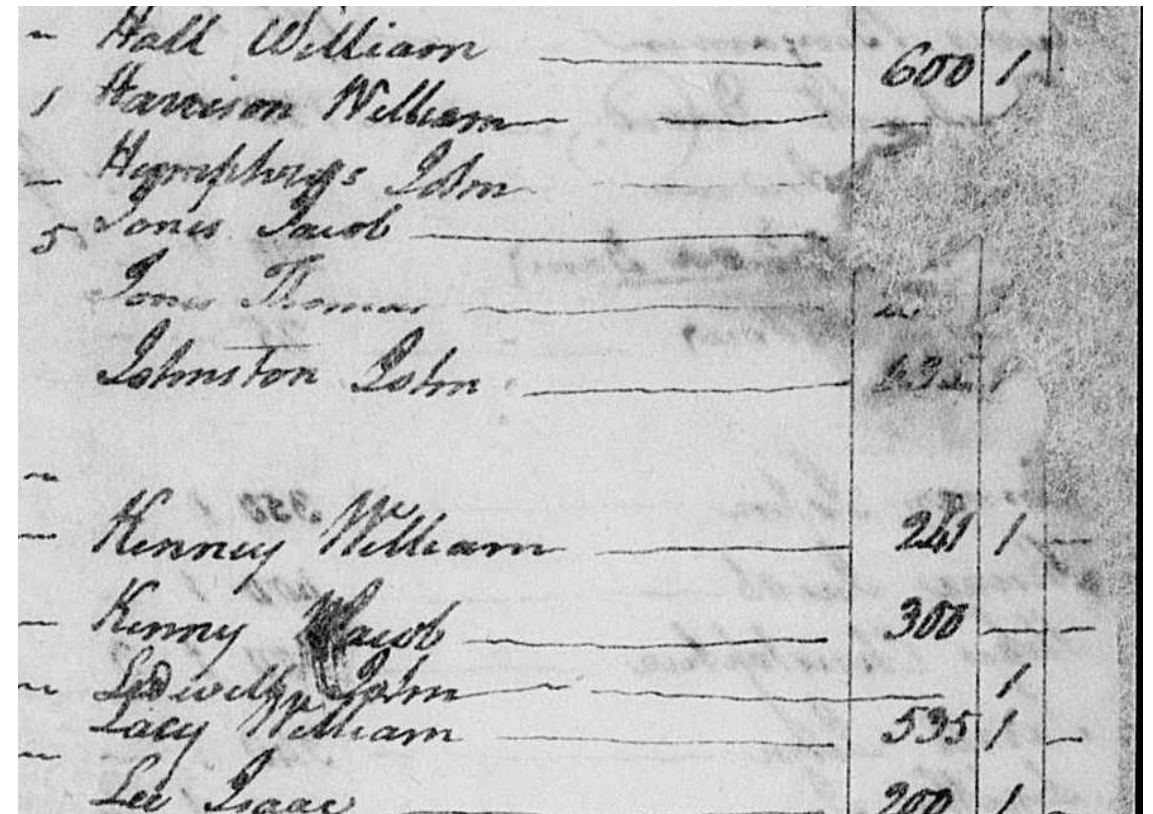 ~ Hall William 600 1
1 Harrison William
~ Humphrys John
5 Jones Jacob
Jones Thomas
Johnston John 1
~
~ Kenney William 241 1 —
— Kenny Jacob 300 —
~ John 1
Lacy William 535 1 —
~ Lee Isaac 200 1